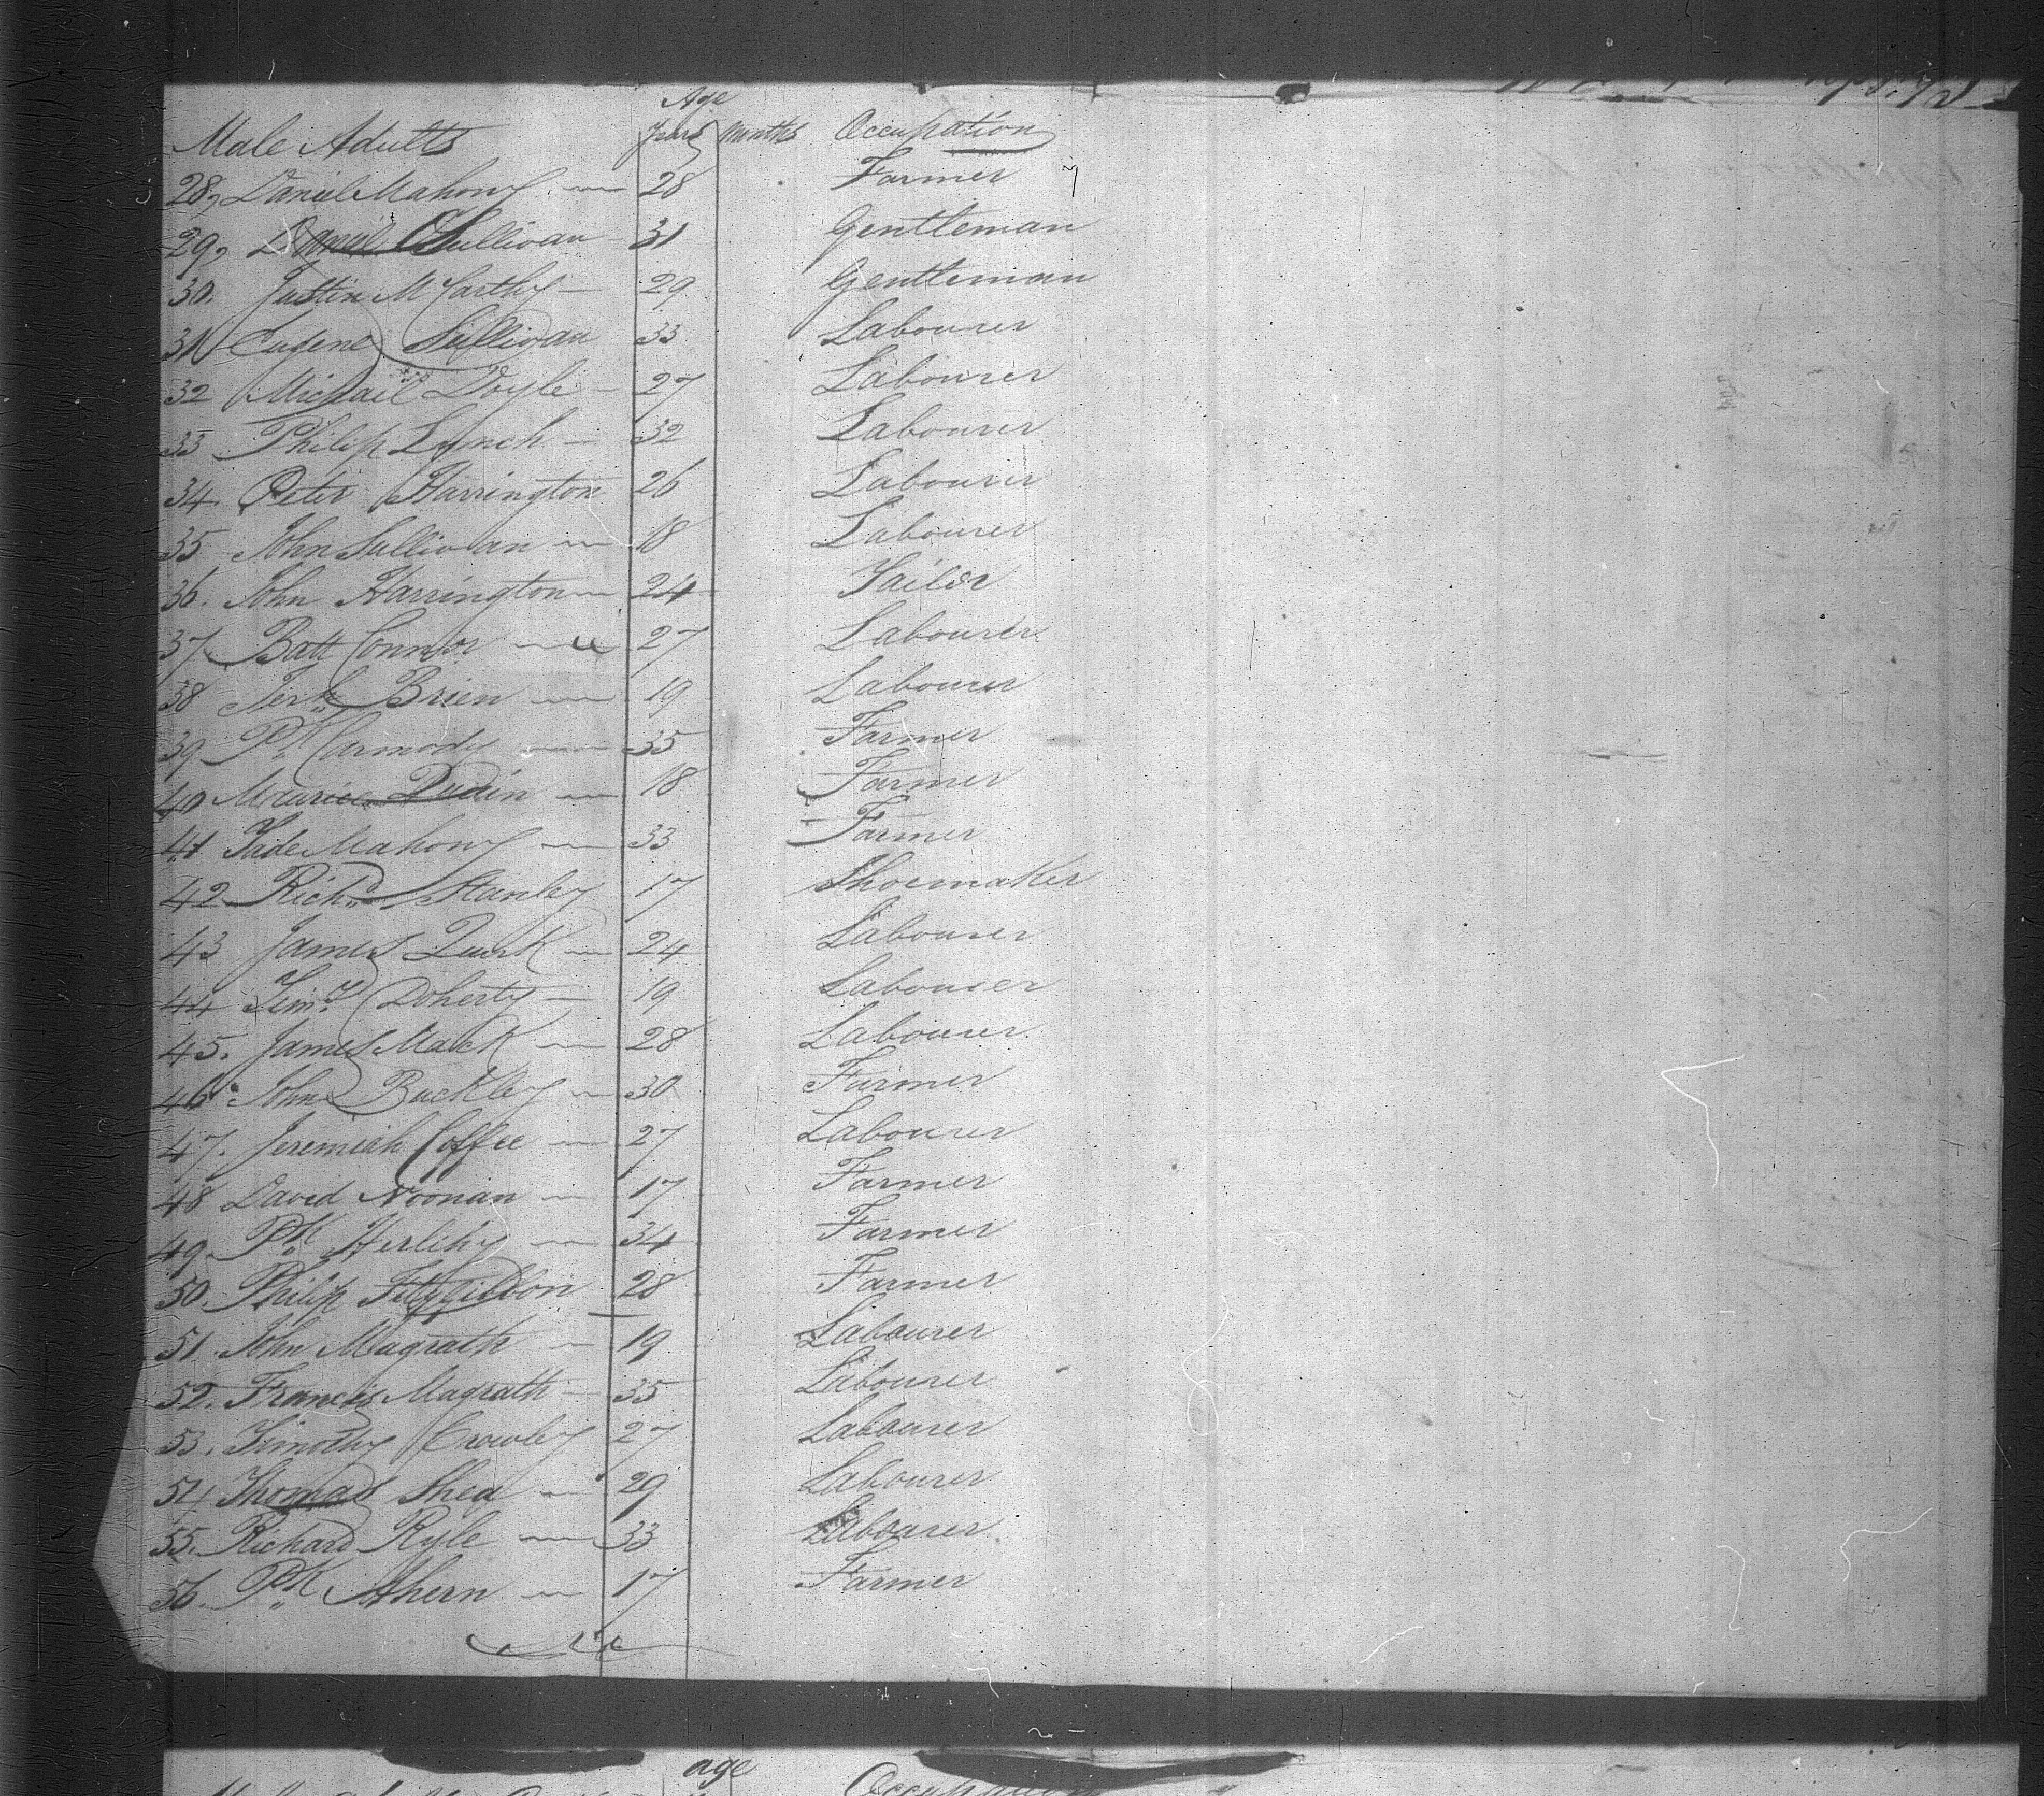 Age
Male Adults Years Months Occupation
28, Daniel Mahony 28 Farmer
29, Daniel O'Sullivan 31 Gentleman
30. Justin McCarthy 29 Gentleman
31 Eugene Sullivan 33 Labourer
32 Michail Doyle 27 Labourer
33 Philip Lynch 32 Labourer
34. Peter Harrington 26 Labourer
35 John Sullivan 18 Labourer
36. John Harrington 24 Tailor
37 Batt Connor 27 Labourer
38 Jerh Brien 19 Labourer
39 Pk Carmody 35 Farmer
40 Maurice 18 Farmer
41 Tade Mahony 33 Farmer
42 Richd Stanley 17 Shoemaker
43 James Quirk 24 Labourer
44 Timy Doherty 19 Labourer
45. James Mack 28 Labourer
46 John Buckley 30 Farmer
47. Jeremiah Coffee 27 Labourer
48 David Noonan 17 Farmer
49. Pk Herlihy 34 Farmer
50. Philip Fitzgibbon 28 Farmer
51. John Magrath 19 Labourer
52. Francis Magrath 35 Labourer
53. Timothy Crowley 27 Labourer
54 Thomas Shea 29 Labourer
55. Richard Ryle 33 Labourer
56. Pk Ahern 17 Farmer
age
Occupation